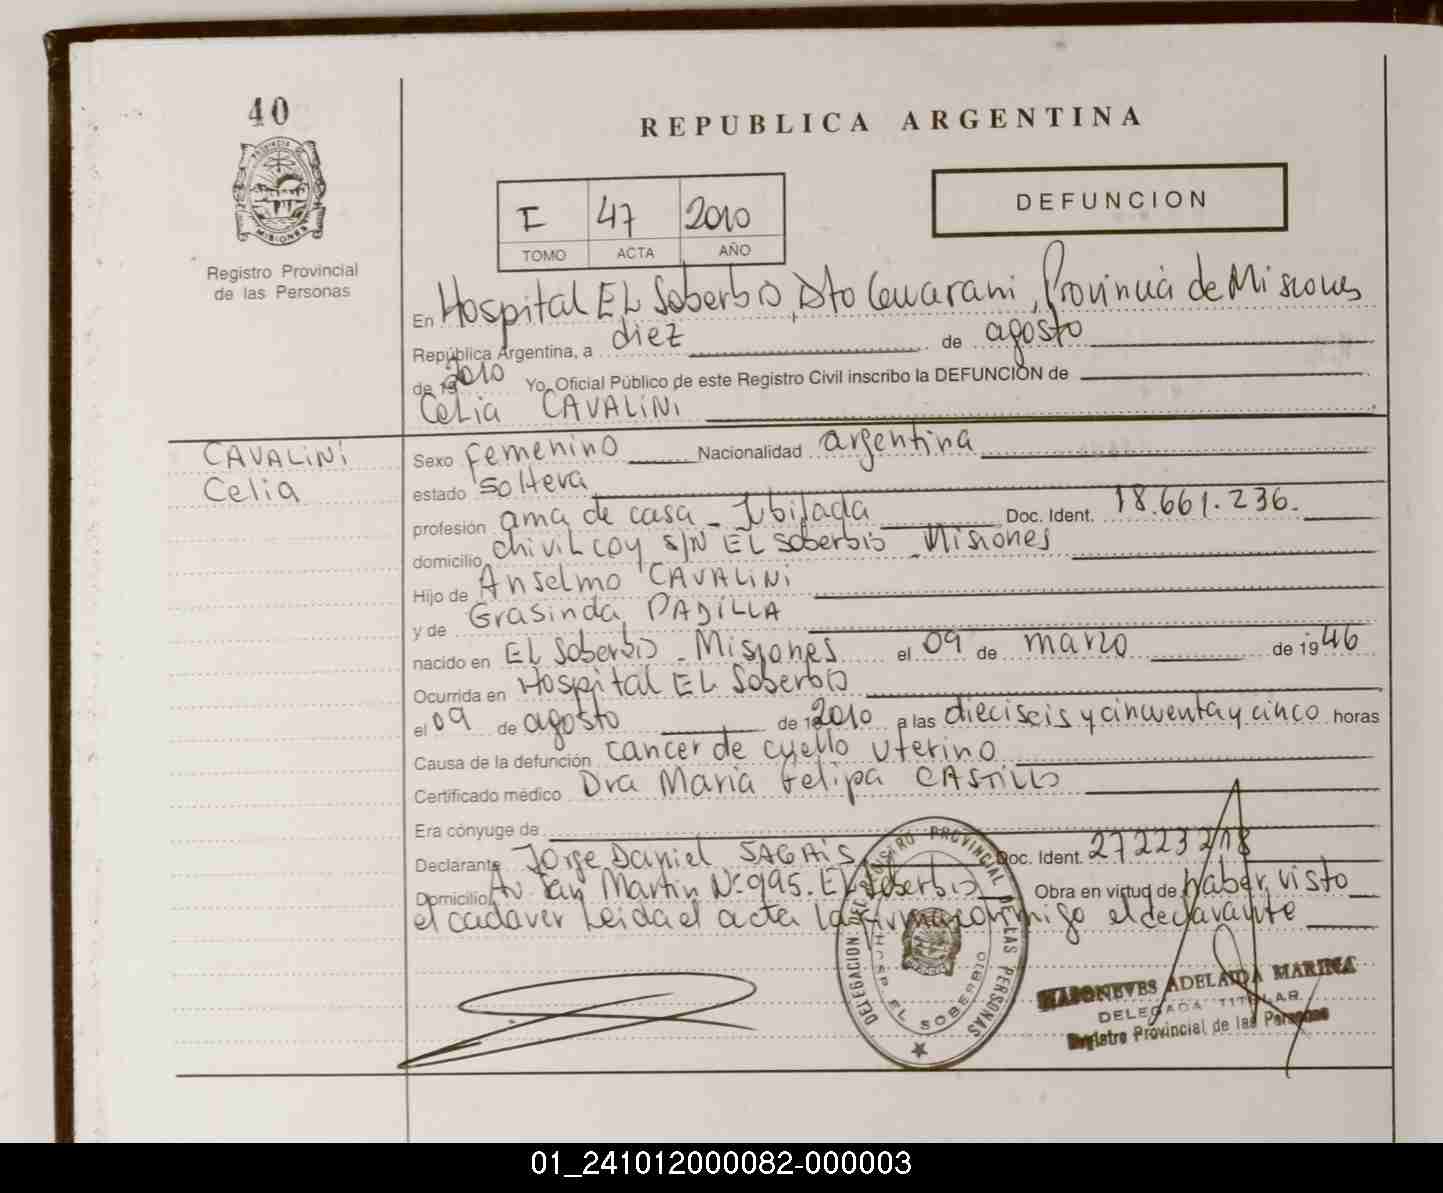 40
REPUBLICA ARGENTINA
PROVINCIA DE
MISIONES
Registro Provincial
de las Personas
I 47 2010
TOMO ACTA AÑO
DEFUNCION
En Hospital EL Soberbio, Dto Guarani, Provincia de Misiones
República Argentina, a diez de agosto
de 19 2010 Yo, Oficial Público de este Registro Civil inscribo la DEFUNCIÓN de
Celia CAVALiNi
CAVALiNi
Celia
Sexo femenino Nacionalidad argentina
estado soltera
profesión ama de casa - Jubilada Doc. Ident. 18.661.236.
domicilio chiviLcoy S/N EL Soberbio - Misiones
Hijo de Anselmo CAVALiNi
y de Grasinda PADiLLA
nacido en EL Soberbio - Misiones el 09 de marzo de 1946
Ocurrida en Hospital EL Soberbio
el 09 de agosto de 2010 a las dieciseis y cincuenta y cinco horas
Causa de la defunción cancer de cuello uterino
Certificado médico Dra Maria Felipa CASTILLO
Era cónyuge de
Declarante Jorge Daniel SAGAiS Doc. Ident. 27223218
Domicilio Av. San Martin Nº 995. EL Soberbio Obra en virtud de haber visto
el cadaver Leida el acta la firma conmigo el declarante
DELEGACION DEL REGISTRO PROVINCIAL DE LAS PERSONAS
HOSP. EL SOBERBIO
ADELAIDA MARINA
DELEGADA TITULAR
Registro Provincial de las Personas
01_241012000082-000003